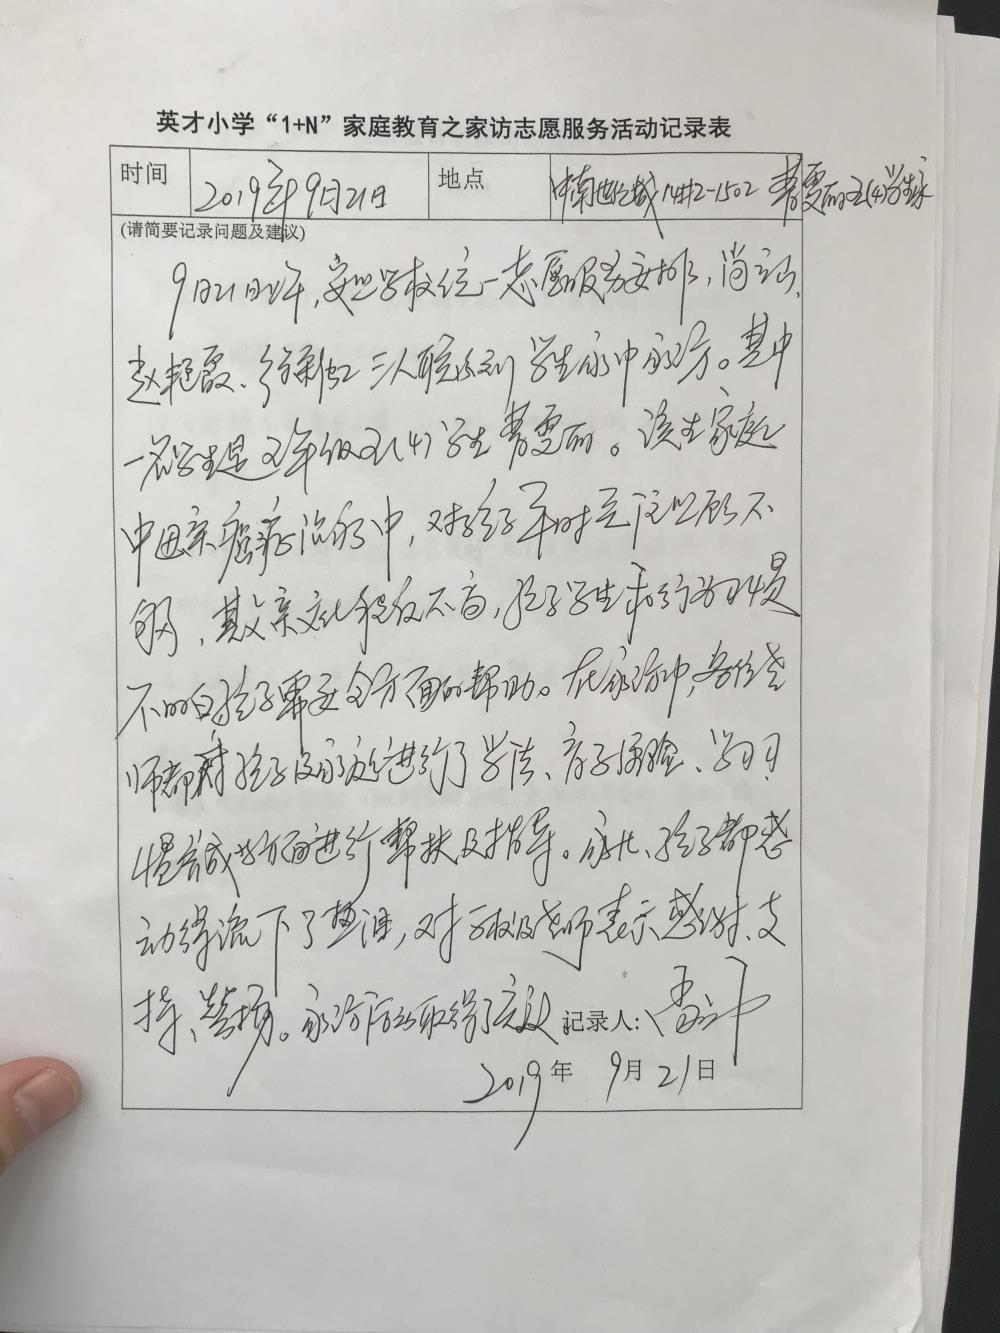 英才小学“1+N”家庭教育之家访志愿服务活动记录表
时间 2019年9月21日 地点 中南世纪城14#2-1502 雯丽五(4)学生家
(请简要记录问题及建议)
9月21日上午,按照学校统一志愿服务安排,尚
赵艳霞、徐 三人联 到学生家中家访。其中
一名学生是五年级五(4)学生 雯丽。该生家庭
中母亲癌症治疗中,对孩子平时关注照顾不
够,其父亲文化程度不高,孩子学生和行为习惯
不 孩子需要全方面的帮助。在家访中,各位老
师都对孩子及家庭进行了学法、亲子体验、学习习
惯养成等方面进行帮扶及指导。家长、孩子都感
动得流下了热泪,对学校及老师表示感谢、支
持、赞扬。家访活动取得了实效 记录人:尚
2019年 9月21日